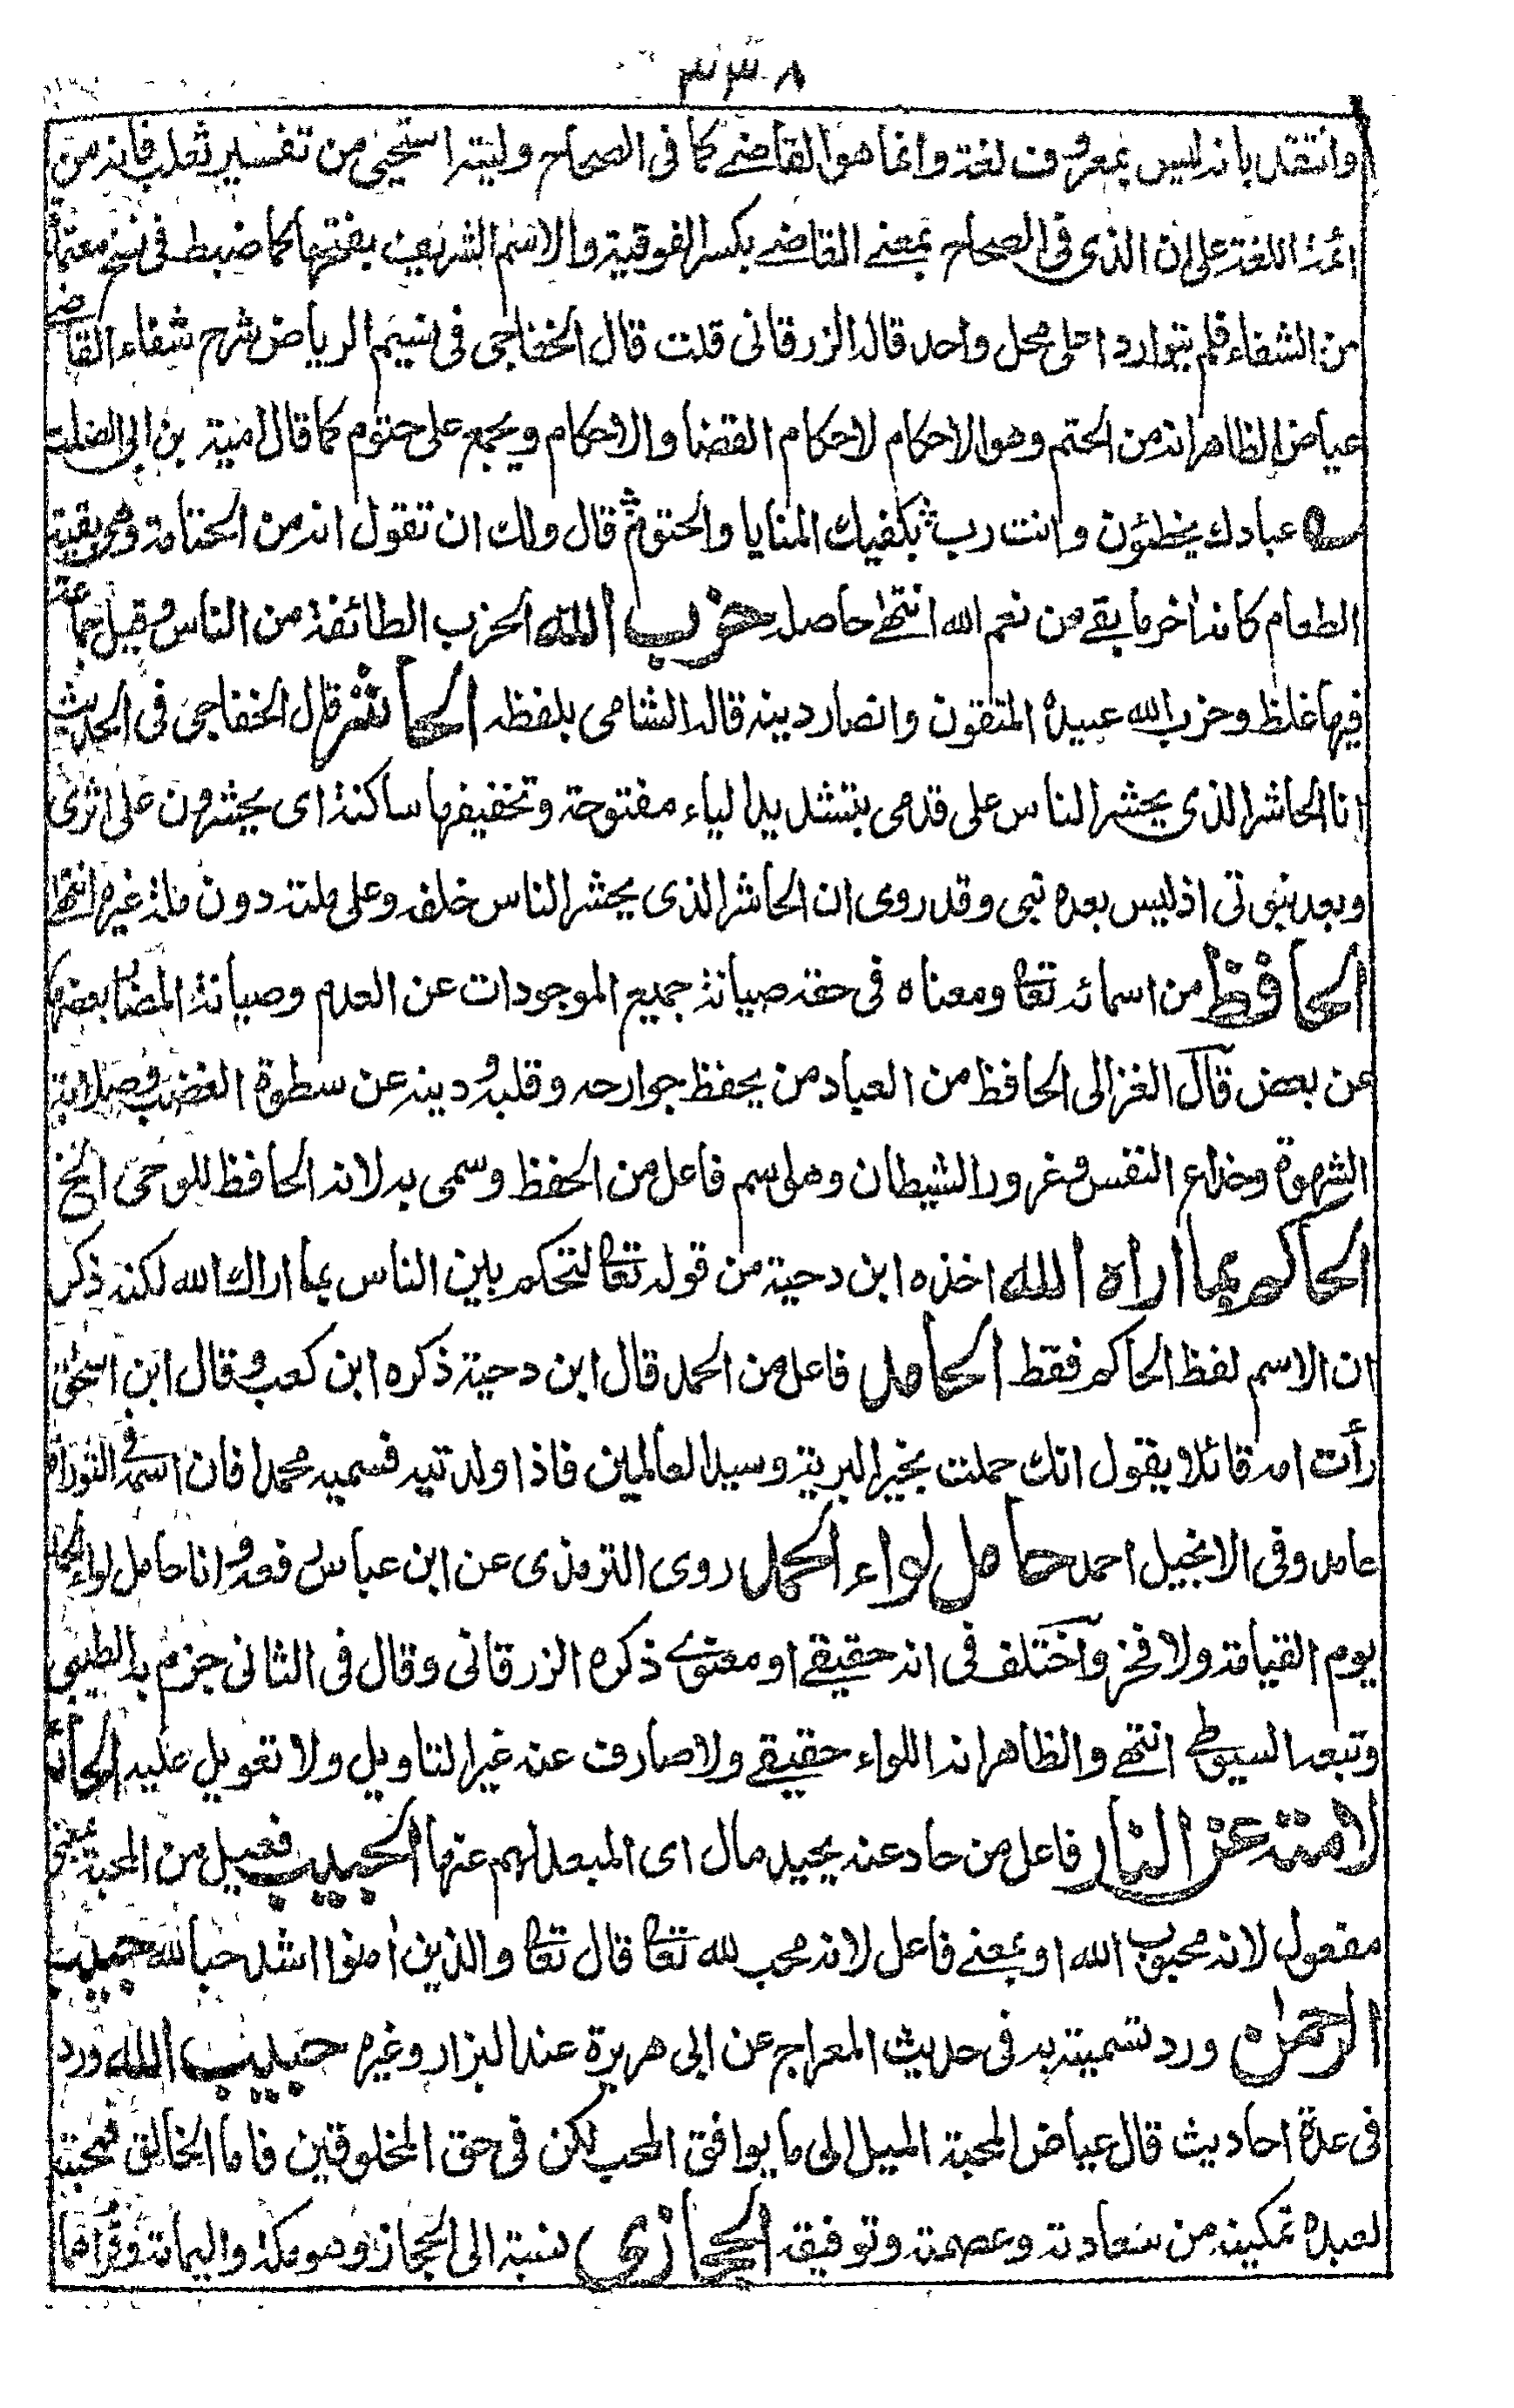 ٣٣٠٨
وانتقد بانه ليس بمعروف لغة وانما هو القاضے كما فى الصحاح وليته استحيى من تفسير ثعلب فانه من
ائمة اللغة على ان الذى فى الصحاح بمعنے القاضے بكسر الفوقية والاسم الشريف بفتحها كما ضبط فى نسخ معتمدة
من الشفاء فلم يتواردا على محل واحد قاله الزرقانى قلت قال الخفاجى فى نسيم الرياض شرح شفاء القاضے
عياض الظاهر انه من الحتم وهو الاحكام لاحكام القضا والاحكام ويجمع على حتوم كما قال امية بن ابى الصلت
عبادك يخطئون وانت رب بكفيك المنايا والحتوم قال ولك ان تقول انه من الحتامة وهى بقية
الطعام كانه اخر ما بقے من نعم الله انتهى حاصله حزب الله الحزب الطائفة من الناس وقيل جماعة
فيها غلظ وحزب الله عبيده المتقون وانصار دينه قاله الشامى بلفظه الحاشر قال الخفاجى فى الحديث
انا الحاشر الذى يحشر الناس على قدمى بتشديد الياء مفتوحة وتخفيفها ساكنة اى يحشرون على اثرى
وبعد نبوتى اذ ليس بعده نبى وقد روى ان الحاشر الذى يحشر الناس خلفه وعلى ملته دون ملة غيره انتهى
الحافظ من اسمائه تعا ومعناه فى حقه صيانة جميع الموجودات عن العدم وصيانة المضا بعضها
عن بعض قال الغزالى الحافظ من العباد من يحفظ جوارحه وقلبه ودينه عن سطوة الغضب وصلابة
الشهوة وخداع النفس وغرور الشيطان وهو اسم فاعل من الحفظ وسمى به لانه الحافظ للوحى الخ
الحاكم بما اراه الله اخذه ابن دحية من قوله تعا لتحكم بين الناس بما اراك الله لكنه ذكر
ان الاسم لفظ الحاكم فقط الحامد فاعل من الحمد قال ابن دحية ذكره ابن كعب وقال ابن اسحق
رأت امه قائلا يقول انك حملت بخير البرية وسيد العالمين فاذا ولدتيه فسميه محمدا فان اسمه فى التوراة
حامد وفى الانجيل احمد حامل لواء الحمد روى الترمذى عن ابن عباس رفعه وانا حامل لواء الحمد
يوم القيامة ولا فخر واختلف فى انه حقيقے او معنوے ذكره الزرقانى وقال فى الثانى جزم به الطيبى
وتبعه السيوطى انتهے والظاهر انه اللواء حقيقے ولا صارف عنه غير التاويل ولا تعويل عليه الحائد
لامته عن النار فاعل من حاد عنه يحيد مال اى المبعد لهم عنها الحبيب فعيل من المحبة بمعنى
مفعول لانه محبوب الله او بمعنے فاعل لانه محب لله تعا قال تعا والذين امنوا اشد حبا لله حبيب
الرحمن ورد تسميته به فى حديث المعراج عن ابى هريرة عند البزار وغيره حبيب الله ورد
فى عدة احاديث قال عياض المحبة الميل الى ما يوافق المحب لكن فى حق المخلوقين فاما الخالق فمحبته
لعبده تمكينه من سعادته وعصمته وتوفيقه الحجازى نسبة الى الحجاز وهو مكة واليمامة وقراهما